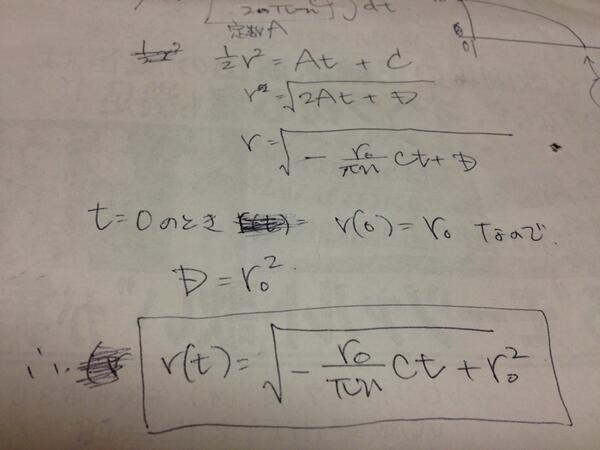 定数A
½r² = At + C
r = √(2At + D)
r = √(-r₀/πn Ct + D)
t = 0 のとき r(0) = r₀ なので
D = r₀²
∴ r(t) = √(-r₀/πn Ct + r₀²)